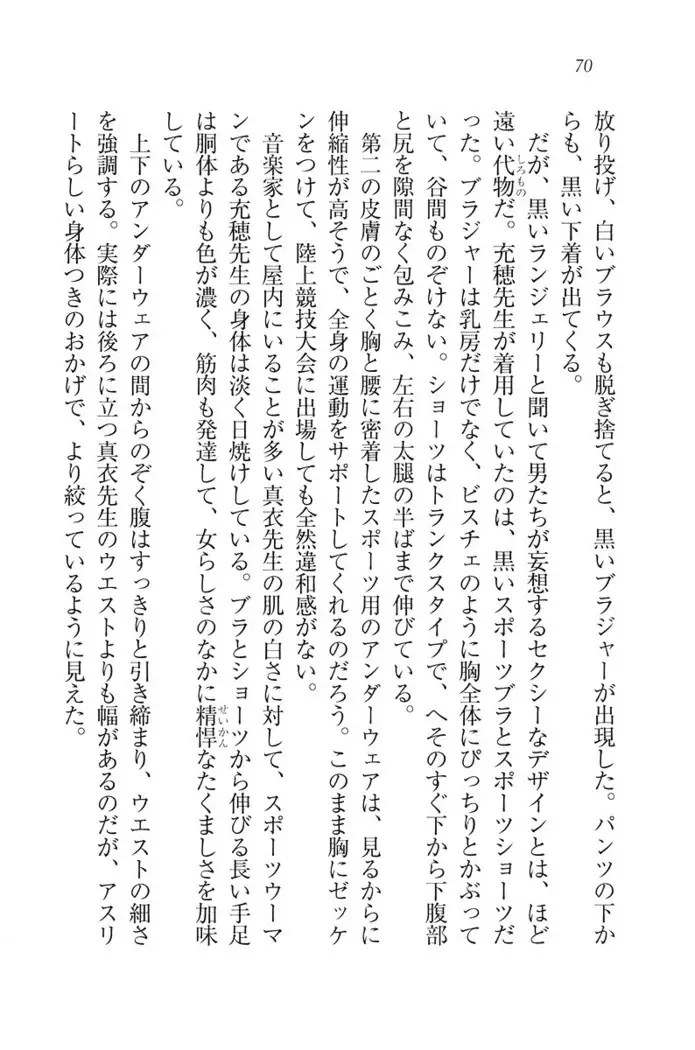 70
放り投げ、白いブラウスも脱ぎ捨てると、黒いブラジャーが出現した。パンツの下か
らも、黒い下着が出てくる。
だが、黒いランジェリーと聞いて男たちが妄想するセクシーなデザインとは、ほど
遠い代物だ。充穂先生が着用していたのは、黒いスポーツブラとスポーツショーツだ
しろもの
った。ブラジャーは乳房だけでなく、ビスチェのように胸全体にぴっちりとかぶって
いて、谷間ものぞけない。ショーツはトランクスタイプで、へそのすぐ下から下腹部
と尻を隙間なく包みこみ、左右の太腿の半ばまで伸びている。
第二の皮膚のごとく胸と腰に密着したスポーツ用のアンダーウェアは、見るからに
伸縮性が高そうで、全身の運動をサポートしてくれるのだろう。このまま胸にゼッケ
ンをつけて、陸上競技大会に出場しても全然違和感がない。
音楽家として屋内にいることが多い真衣先生の肌の白さに対して、スポーツウーマ
ンである充穂先生の身体は淡く日焼けしている。ブラとショーツから伸びる長い手足
は胴体よりも色が濃く、筋肉も発達して、女らしさのなかに精悍なたくましさを加味
せいかん
している。
上下のアンダーウェアの間からのぞく腹はすっきりと引き締まり、ウエストの細さ
を強調する。実際には後ろに立つ真衣先生のウエストよりも幅があるのだが、アスリ
ートらしい身体つきのおかげで、より絞っているように見えた。